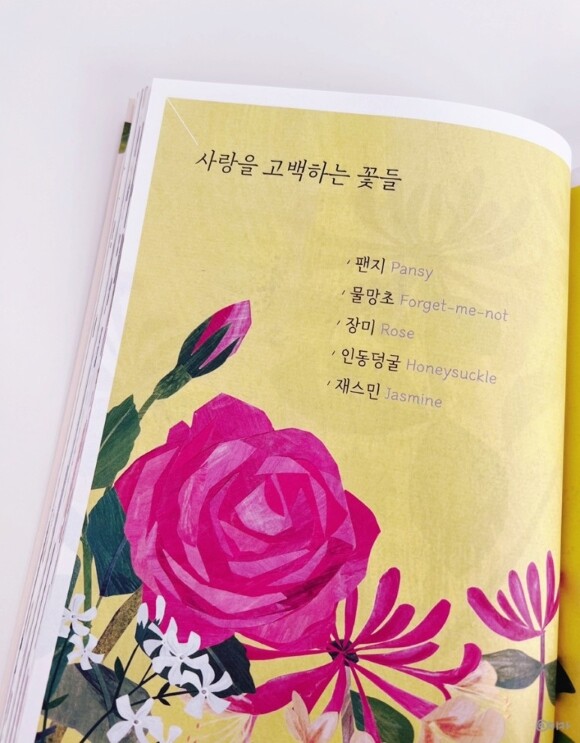 사랑을 고백하는 꽃들
팬지 Pansy
물망초 Forget-me-not
장미 Rose
인동덩굴 Honeysuckle
재스민 Jasmine